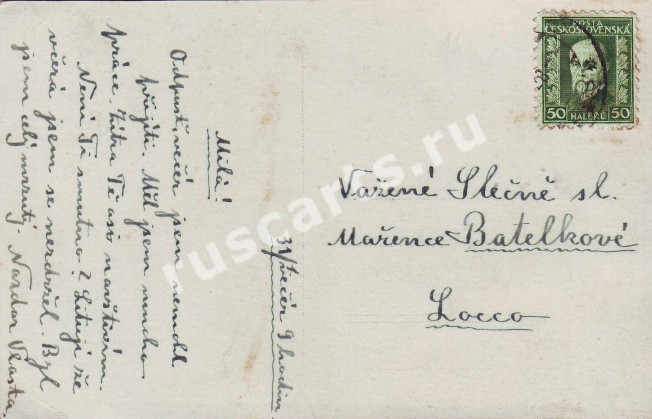 31/1 večer 9 hodin
Milá!
Odpusť, večer jsem nemohl
přijíti. Měl jsem mnoho
práce. Zítra Tě asi navštívím.
Není Ti smutno? Lituji že
včera jsem se nezdržel. Byl
jsem celý mrzutý. Nazdar Vlasta
POŠTA
ČESKOSLOVENSKÁ
50 HALÉŘŮ 50
Vážené Slečně sl.
Mařence Batelkové
Locco
ruscards.ru